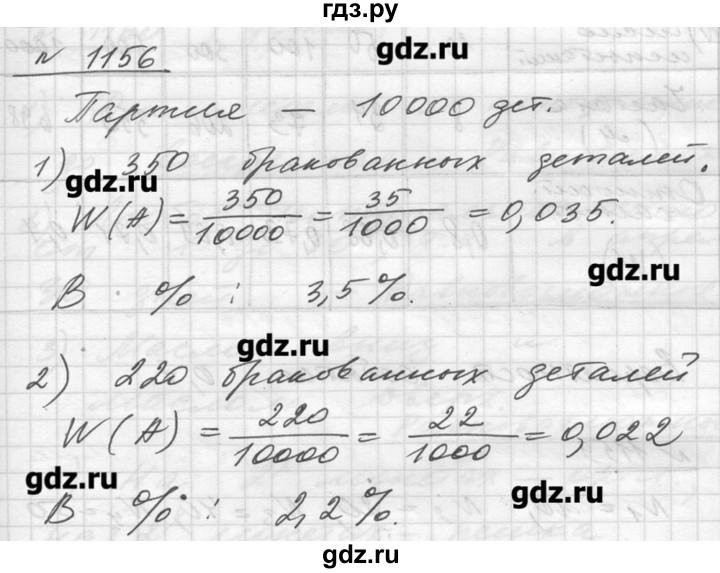 гдз.ру
№ 1156
gdz.ru
Партия — 10000 дет.
1) 350 бракованных деталей.
gdz.ru
W(A) = 350/10000 = 35/1000 = 0,035.
gdz.ru
В % : 3,5%.
gdz.ru
2) 220 бракованных деталей
W(A) = 220/10000 = 22/1000 = 0,022
gdz.ru
gdz.ru
В % : 2,2%.
gdz.ru